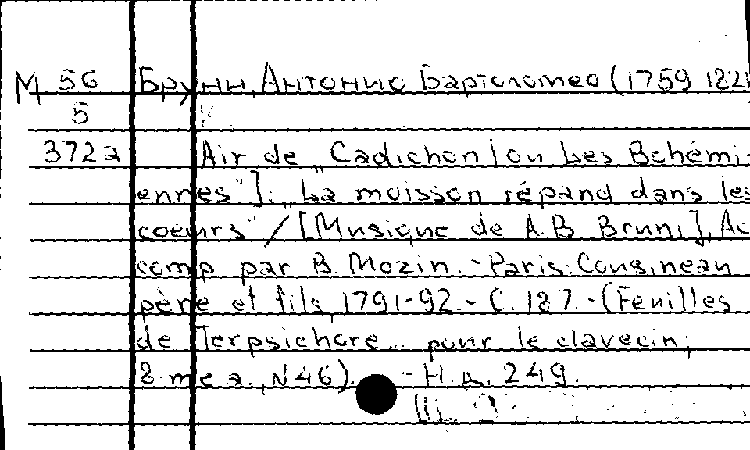 М 56 Бруни, Антонио Бартоломео (1759 1821
5
372а Air de „Cadichon [ou Les Bohémi-
ennes"]: „La moisson répand dans les
coeurs" / [Musique de A.B. Bruni], Ac
comp par B. Mozin. - Paris: Cousineau
père et fils, 1791-92. - С. 187. - (Feuilles
de Terpsichore... pour le clavecin;
8 me a., N 46). - Н.д. 249.